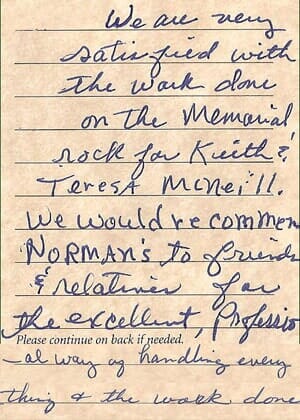 We are very
satisfied with
the work done
on the Memorial
rock for Keith &
Teresa McNeill.
We would recommen
NORMAN's to friends
& relatives for
the excellent, Professio
Please continue on back if needed.
-al way of handling every
thing & the work done